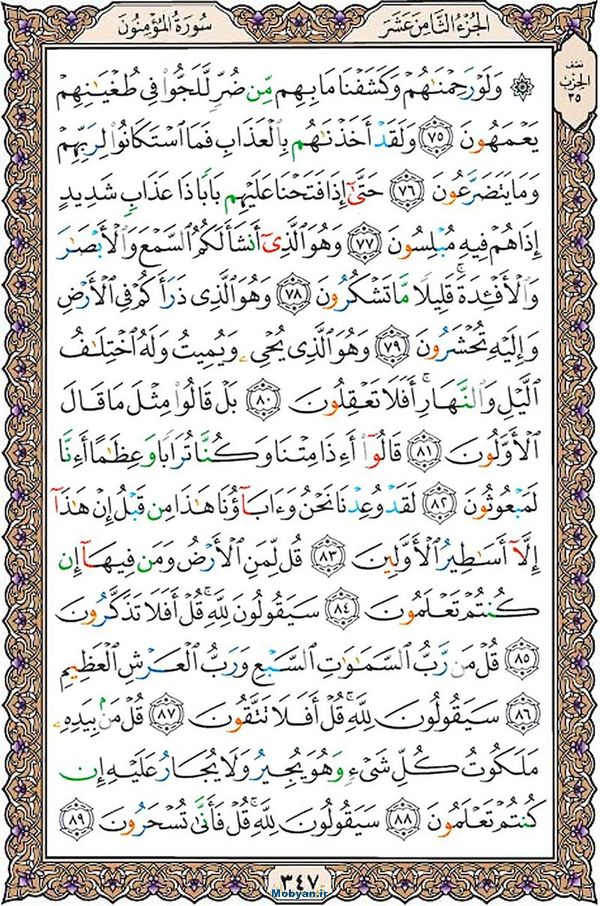 سُورَةُ المُؤْمِنُونَ
الجُزْءُ الثَّامِنَ عَشَرَ
نصف
الحزب
٣٥
۞ وَلَوْ رَحِمْنَٰهُمْ وَكَشَفْنَا مَا بِهِم مِّن ضُرٍّ لَّلَجُّوا۟ فِى طُغْيَٰنِهِمْ
يَعْمَهُونَ ٧٥ وَلَقَدْ أَخَذْنَٰهُم بِٱلْعَذَابِ فَمَا ٱسْتَكَانُوا۟ لِرَبِّهِمْ
وَمَا يَتَضَرَّعُونَ ٧٦ حَتَّىٰٓ إِذَا فَتَحْنَا عَلَيْهِم بَابًا ذَا عَذَابٍ شَدِيدٍ
إِذَا هُمْ فِيهِ مُبْلِسُونَ ٧٧ وَهُوَ ٱلَّذِىٓ أَنشَأَ لَكُمُ ٱلسَّمْعَ وَٱلْأَبْصَٰرَ
وَٱلْأَفْـِٔدَةَ ۚ قَلِيلًا مَّا تَشْكُرُونَ ٧٨ وَهُوَ ٱلَّذِى ذَرَأَكُمْ فِى ٱلْأَرْضِ
وَإِلَيْهِ تُحْشَرُونَ ٧٩ وَهُوَ ٱلَّذِى يُحْىِۦ وَيُمِيتُ وَلَهُ ٱخْتِلَٰفُ
ٱلَّيْلِ وَٱلنَّهَارِ ۚ أَفَلَا تَعْقِلُونَ ٨٠ بَلْ قَالُوا۟ مِثْلَ مَا قَالَ
ٱلْأَوَّلُونَ ٨١ قَالُوٓا۟ أَءِذَا مِتْنَا وَكُنَّا تُرَابًا وَعِظَٰمًا أَءِنَّا
لَمَبْعُوثُونَ ٨٢ لَقَدْ وُعِدْنَا نَحْنُ وَءَابَآؤُنَا هَٰذَا مِن قَبْلُ إِنْ هَٰذَآ
إِلَّآ أَسَٰطِيرُ ٱلْأَوَّلِينَ ٨٣ قُل لِّمَنِ ٱلْأَرْضُ وَمَن فِيهَآ إِن
كُنتُمْ تَعْلَمُونَ ٨٤ سَيَقُولُونَ لِلَّهِ ۚ قُلْ أَفَلَا تَذَكَّرُونَ
٨٥ قُلْ مَن رَّبُّ ٱلسَّمَٰوَٰتِ ٱلسَّبْعِ وَرَبُّ ٱلْعَرْشِ ٱلْعَظِيمِ
٨٦ سَيَقُولُونَ لِلَّهِ ۚ قُلْ أَفَلَا تَتَّقُونَ ٨٧ قُلْ مَنۢ بِيَدِهِۦ
مَلَكُوتُ كُلِّ شَىْءٍ وَهُوَ يُجِيرُ وَلَا يُجَارُ عَلَيْهِ إِن
كُنتُمْ تَعْلَمُونَ ٨٨ سَيَقُولُونَ لِلَّهِ ۚ قُلْ فَأَنَّىٰ تُسْحَرُونَ ٨٩
٣٤٧
Mobyan.ir